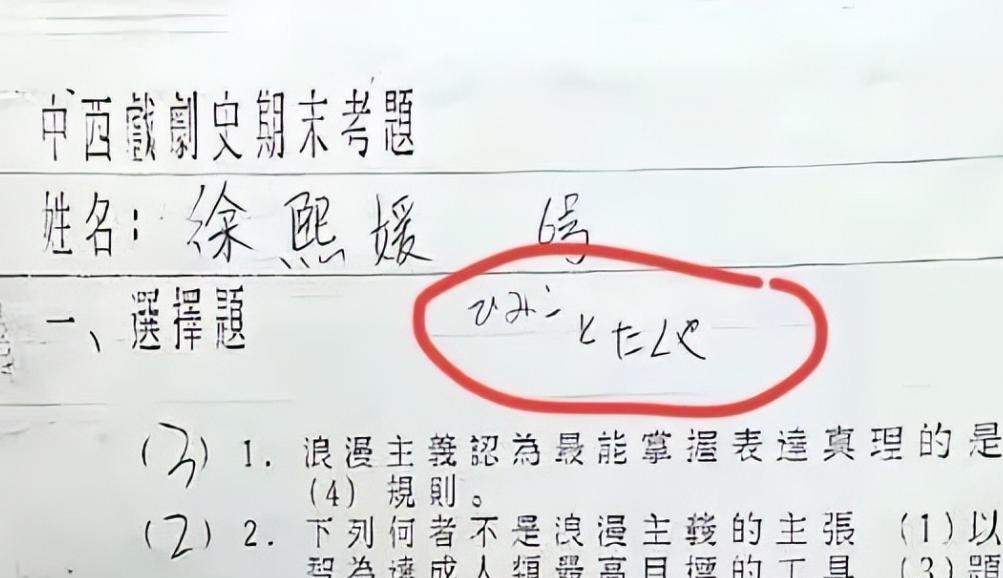 中西戲劇史期末考題
姓名：徐熙媛 6号
一、選擇題
ひみこ
とたくや
(3) 1. 浪漫主義認為最能掌握表達真理的是
(4) 規則。
(2) 2. 下列何者不是浪漫主義的主張 (1)以
智為達成人類最高目標的工具 (3)題